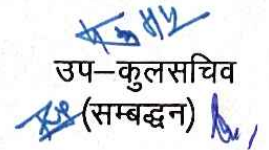 उप–कुलसचिव
(सम्बद्धन)